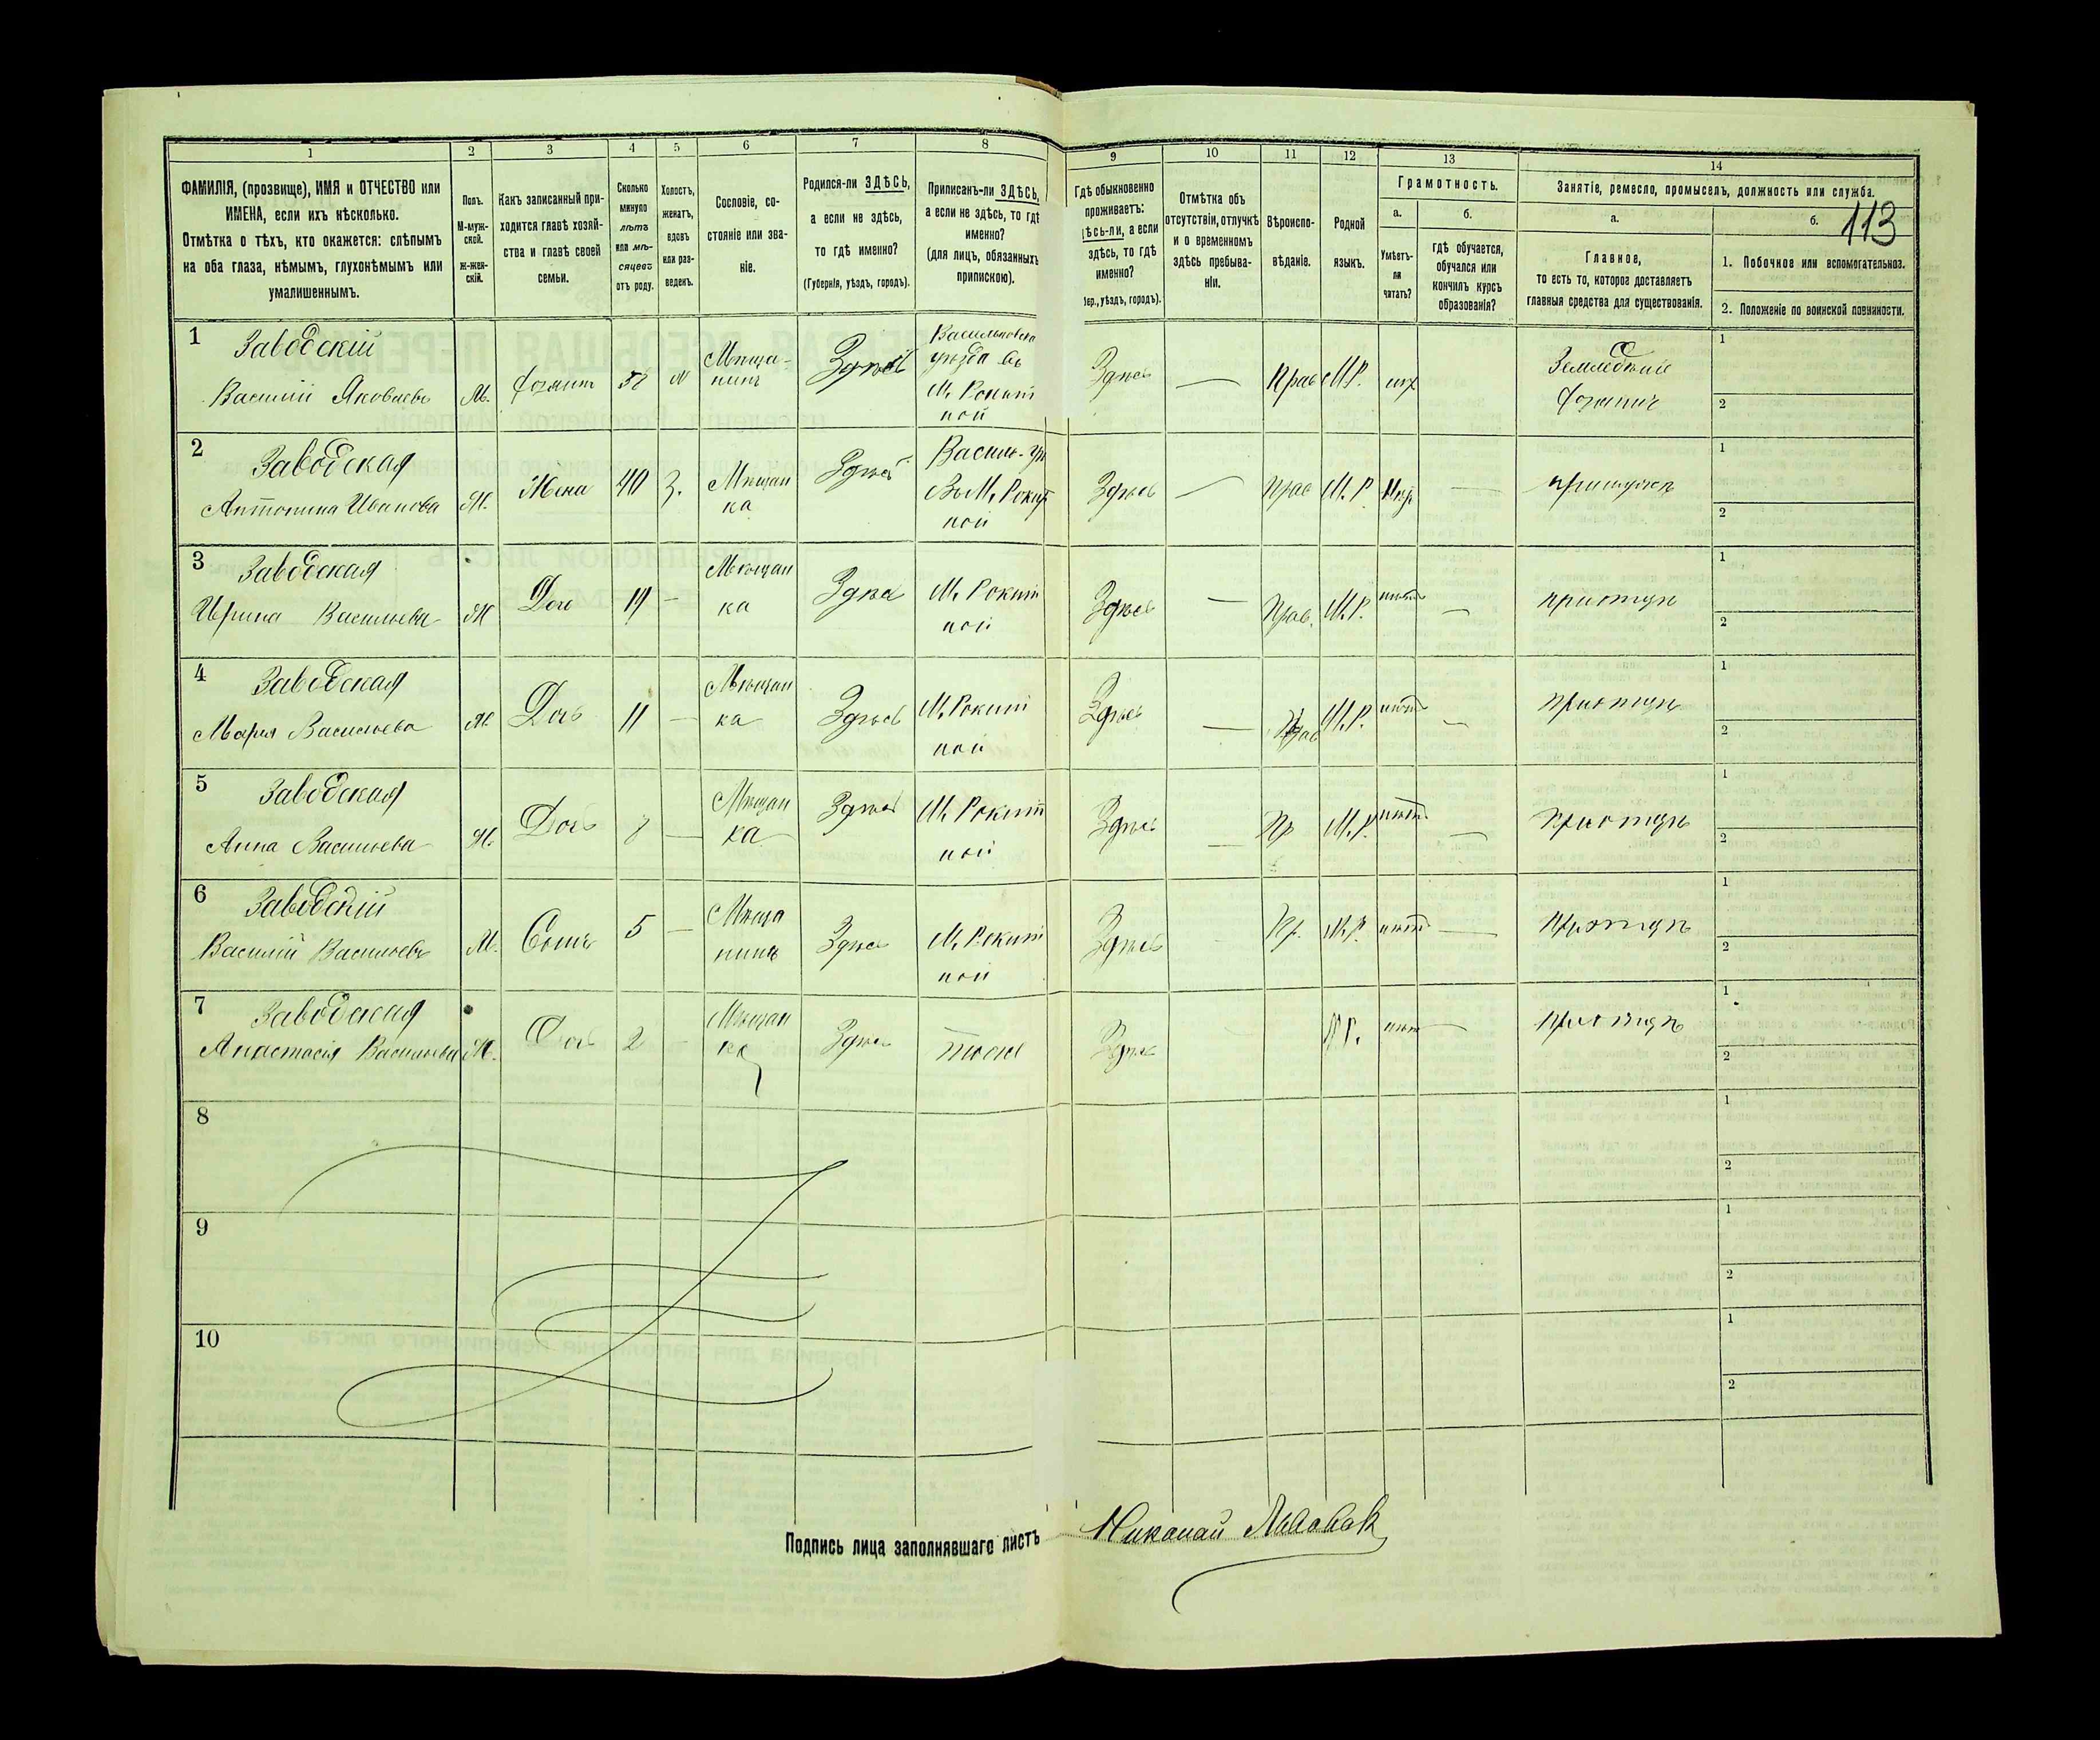 113
1 2 3 4 5 6 7 8 9 10 11 12 13 14
ФАМИЛІЯ, (прозвище), ИМЯ и ОТЧЕСТВО или
ИМЕНА, если ихъ нѣсколько.
Отмѣтка о тѣхъ, кто окажется: слѣпымъ
на оба глаза, нѣмымъ, глухонѣмымъ или
умалишеннымъ.
Полъ.
М-муж-
ской.
ж-жен-
скій.
Какъ записанный при-
ходится главѣ хозяй-
ства и главѣ своей
семьи.
Сколько
минуло
лѣтъ
или мѣ-
сяцевъ
отъ роду.
Холостъ,
женатъ,
вдовъ
или раз-
веденъ.
Сословіе, со-
стояніе или зва-
ніе.
Родился-ли ЗДѢСЬ,
а если не здѣсь,
то гдѣ именно?
(Губернія, уѣздъ, городъ).
Приписанъ-ли ЗДѢСЬ,
а если не здѣсь, то гдѣ
именно?
(для лицъ, обязанныхъ
припискою).
Гдѣ обыкновенно
проживаетъ:
здѣсь-ли, а если
здѣсь, то гдѣ
именно?
уѣздъ, городъ).
Отмѣтка объ
отсутствіи, отлучкѣ
и о временномъ
здѣсь пребыва-
ніи.
Вѣроиспо-
вѣданіе.
Родной
языкъ.
Грамотность.
а.
Умѣетъ-
ли
читать?
б.
гдѣ обучается,
обучался или
кончилъ курсъ
образованія?
Занятіе, ремесло, промыселъ, должность или служба.
а.
Главное,
то есть то, которое доставляетъ
главныя средства для существованія.
б.
1. Побочное или вспомогательное.
2. Положеніе по воинской повинности.
1 Заводскій
Василій Яковлевъ М.
Мѣща-
нинъ
Здѣсь
уѣзда въ
М. Рокит
ной
Здѣсь — Прав М.Р.
1
2
2 Заводская
Антонина Иванова Ж. Жена 40 З.
Мѣщан
ка
Здѣсь
ВъМ. Рокит
ной
Здѣсь — Прав М.Р —
1
2
3 Заводская
Ирина Васильева Ж —
Мѣщан
ка
Здѣсь
М. Рокит
ной
Здѣсь — Прав. М.Р. —
1
2
4 Заводская
Марія Васильева Ж Дочь 11 —
Мѣщан
ка
Здѣсь
М. Рокит
ной
Здѣсь — Прав М.Р. —
1
2
5 Заводская
Анна Васильева Ж. Дочь —
Мѣщан
ка
Здѣсь
М. Рокит
ной
Здѣсь — Пр М.Р. —
1
2
6 Заводскій
Василій Васильевъ М. Сынъ 5 —
Мѣща
нинъ
Здѣсь
М. Рокит
ной
Здѣсь Пр. М.Р. —
1
2
7 Заводская
Анастасія Васильева Ж. Дочь 2 —
Мѣщан
ка
Здѣсь
Здѣсь —
1
2
8
1
2
9
1
2
10
1
2
Подпись лица заполнявшаго листъ Николай